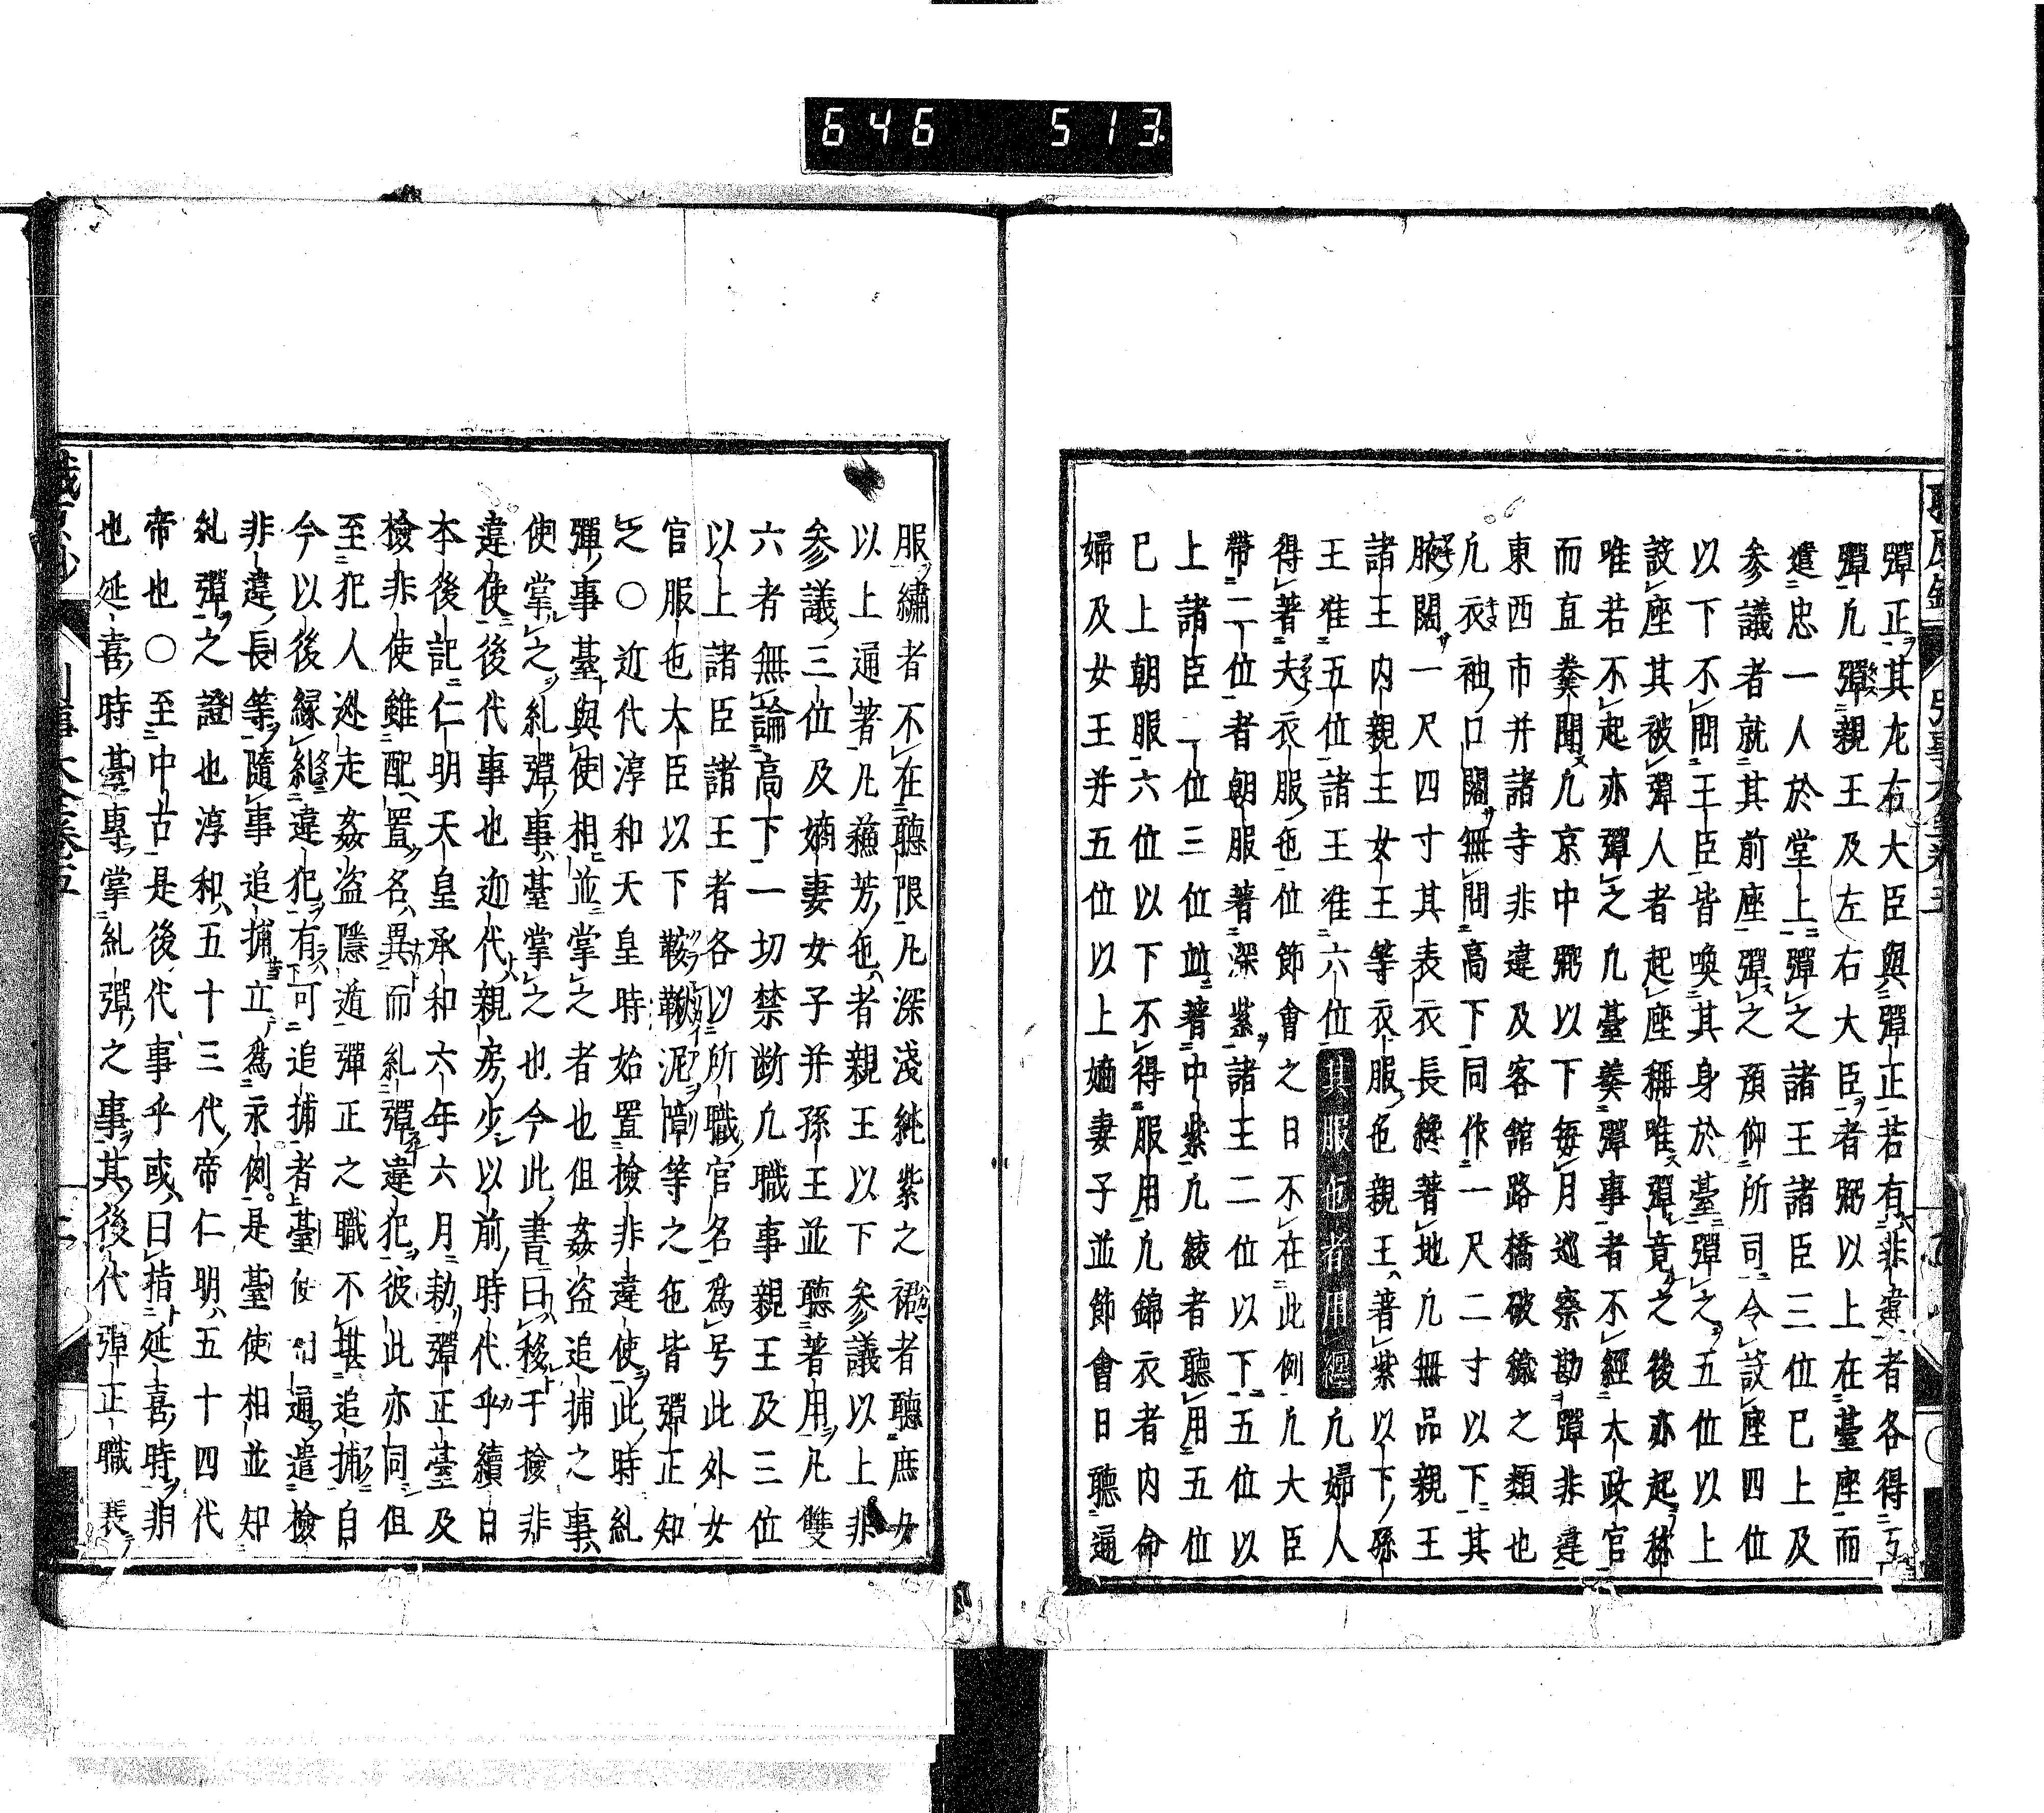 646 513
彈正其左右大臣與彈正若有非違者各得互
彈凡彈親王及左右大臣者弼以上在臺座而
遣忠一人於堂上彈之諸王諸臣三位已上及
參議者就其前座彈之預仰所司令設座四位
以下不問王臣皆喚其身於臺彈之五位以上
設座其被彈人者起座稱唯彈竟之後亦起稱
唯若不起亦彈之凡臺奏彈事者不經太政官
而直奏聞凡京中弼以下每月巡察勘彈非違
東西市并諸寺非違及客舘路橋破穢之類也
凡衣袖口闊無問高下同作一尺二寸以下其
腋闊一尺四寸其表衣長纔著地凡無品親王
諸王内親王女王等衣服色親王著紫以下孫
王准五位諸王准六位其服色者用纁凡婦人
得著夫衣服色位節會之日不在此例凡大臣
帶二位者朝服著深紫諸王二位以下五位以
上諸臣二位三位並著中紫凡綾者聽用五位
已上朝服六位以下不得服用凡錦衣者内命
婦及女王并五位以上嫡妻子並節會日聽通
服繡者不在聽限凡深淺純紫之裙者聽庶女
以上通著凡蘓芳色者親王以下參議以上非
參議三位及嫡妻女子并孫王並聽著用凡雙
六者無論高下一切禁断凡職事親王及三位
以上諸臣諸王者各以所職官名爲号此外女
官服色大臣以下鞍鞦泥障等之色皆彈正知
之○近代淳和天皇時始置撿非違使此時糺
彈事臺與使相並掌之者也但姦盗追捕之事
使掌之糺彈事臺掌之也今此書曰移于撿非
違使後代事也近代親房少以前時代乎續日
本後記仁明天皇承和六年六月勅彈正臺及
撿非使雖配置名異而糺彈違犯彼此亦同但
至犯人逃走姦盗隱遁彈正之職不堪追捕自
今以後縁糺違犯有可追捕者臺使通遣撿
非違長等隨事追捕立爲永例是臺使相並知
糺彈之證也淳和五十三代帝仁明五十四代
帝也○至中古是後代事乎或曰指延喜時非
也延喜時臺專掌糺彈之事其後代彈正職